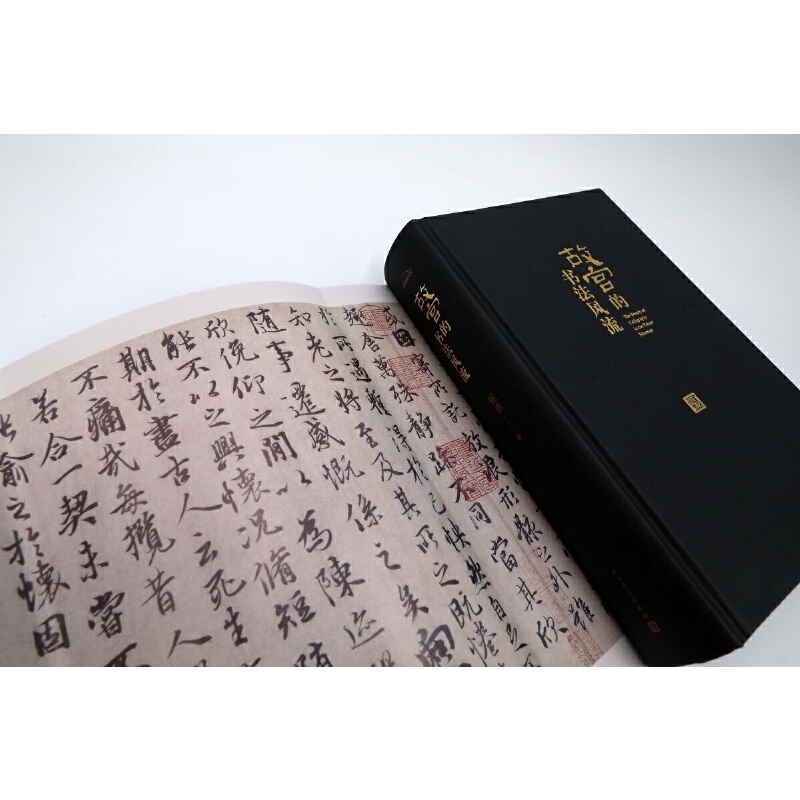 故宫的
书法风流
The Beauty of
Calligraphy
in the Palace
Museum
故宫的书法风流
祝勇 著
或因寄所託放浪形骸之外雖
趣舍萬殊靜躁不同當其欣
於所遇蹔得於己怏然自足
知老之將至及其所之既惓
隨事遷感慨係之矣向
欣俛仰之閒以為陳迹
能不以之興懷況脩短隨
期於盡古人云死生
不痛哉每攬昔人
若合一契未嘗不
能喻之於懷固